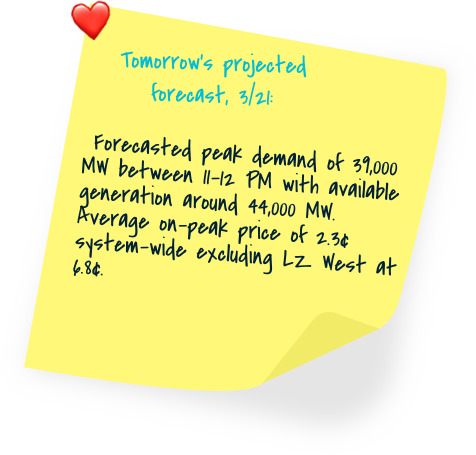 Tomorrow's projected
forecast, 3/21:
Forecasted peak demand of 39,000
MW between 11-12 PM with available
generation around 44,000 MW.
Average on-peak price of 2.3¢
system-wide excluding LZ West at
6.8¢.